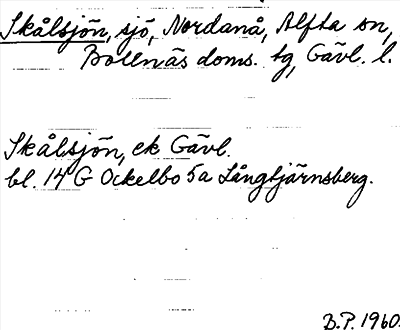 Skålsjön, sjö, Nordanå, Alfta sn,
Bollnäs doms. tg, Gävl. l.
Skålsjön, ek Gävl.
bl. 14 G Ockelbo 5a Långtjärnsberg.
B.P. 1960.